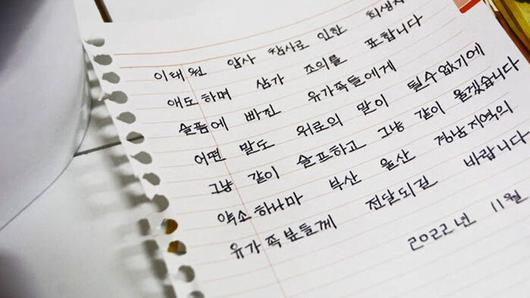 이태원 압사 참사로 인한 희생자
애도하며 삼가 조의를 표합니다
슬픔에 빠진 유가족들에게
어떤 말도 위로의 말이 될수 없기에
그냥 같이 슬프하고 그냥 같이 울겠습니다
약소하나마 부산 울산 경남지역의
유가족분들께 전달되길 바랍니다
2022년 11월